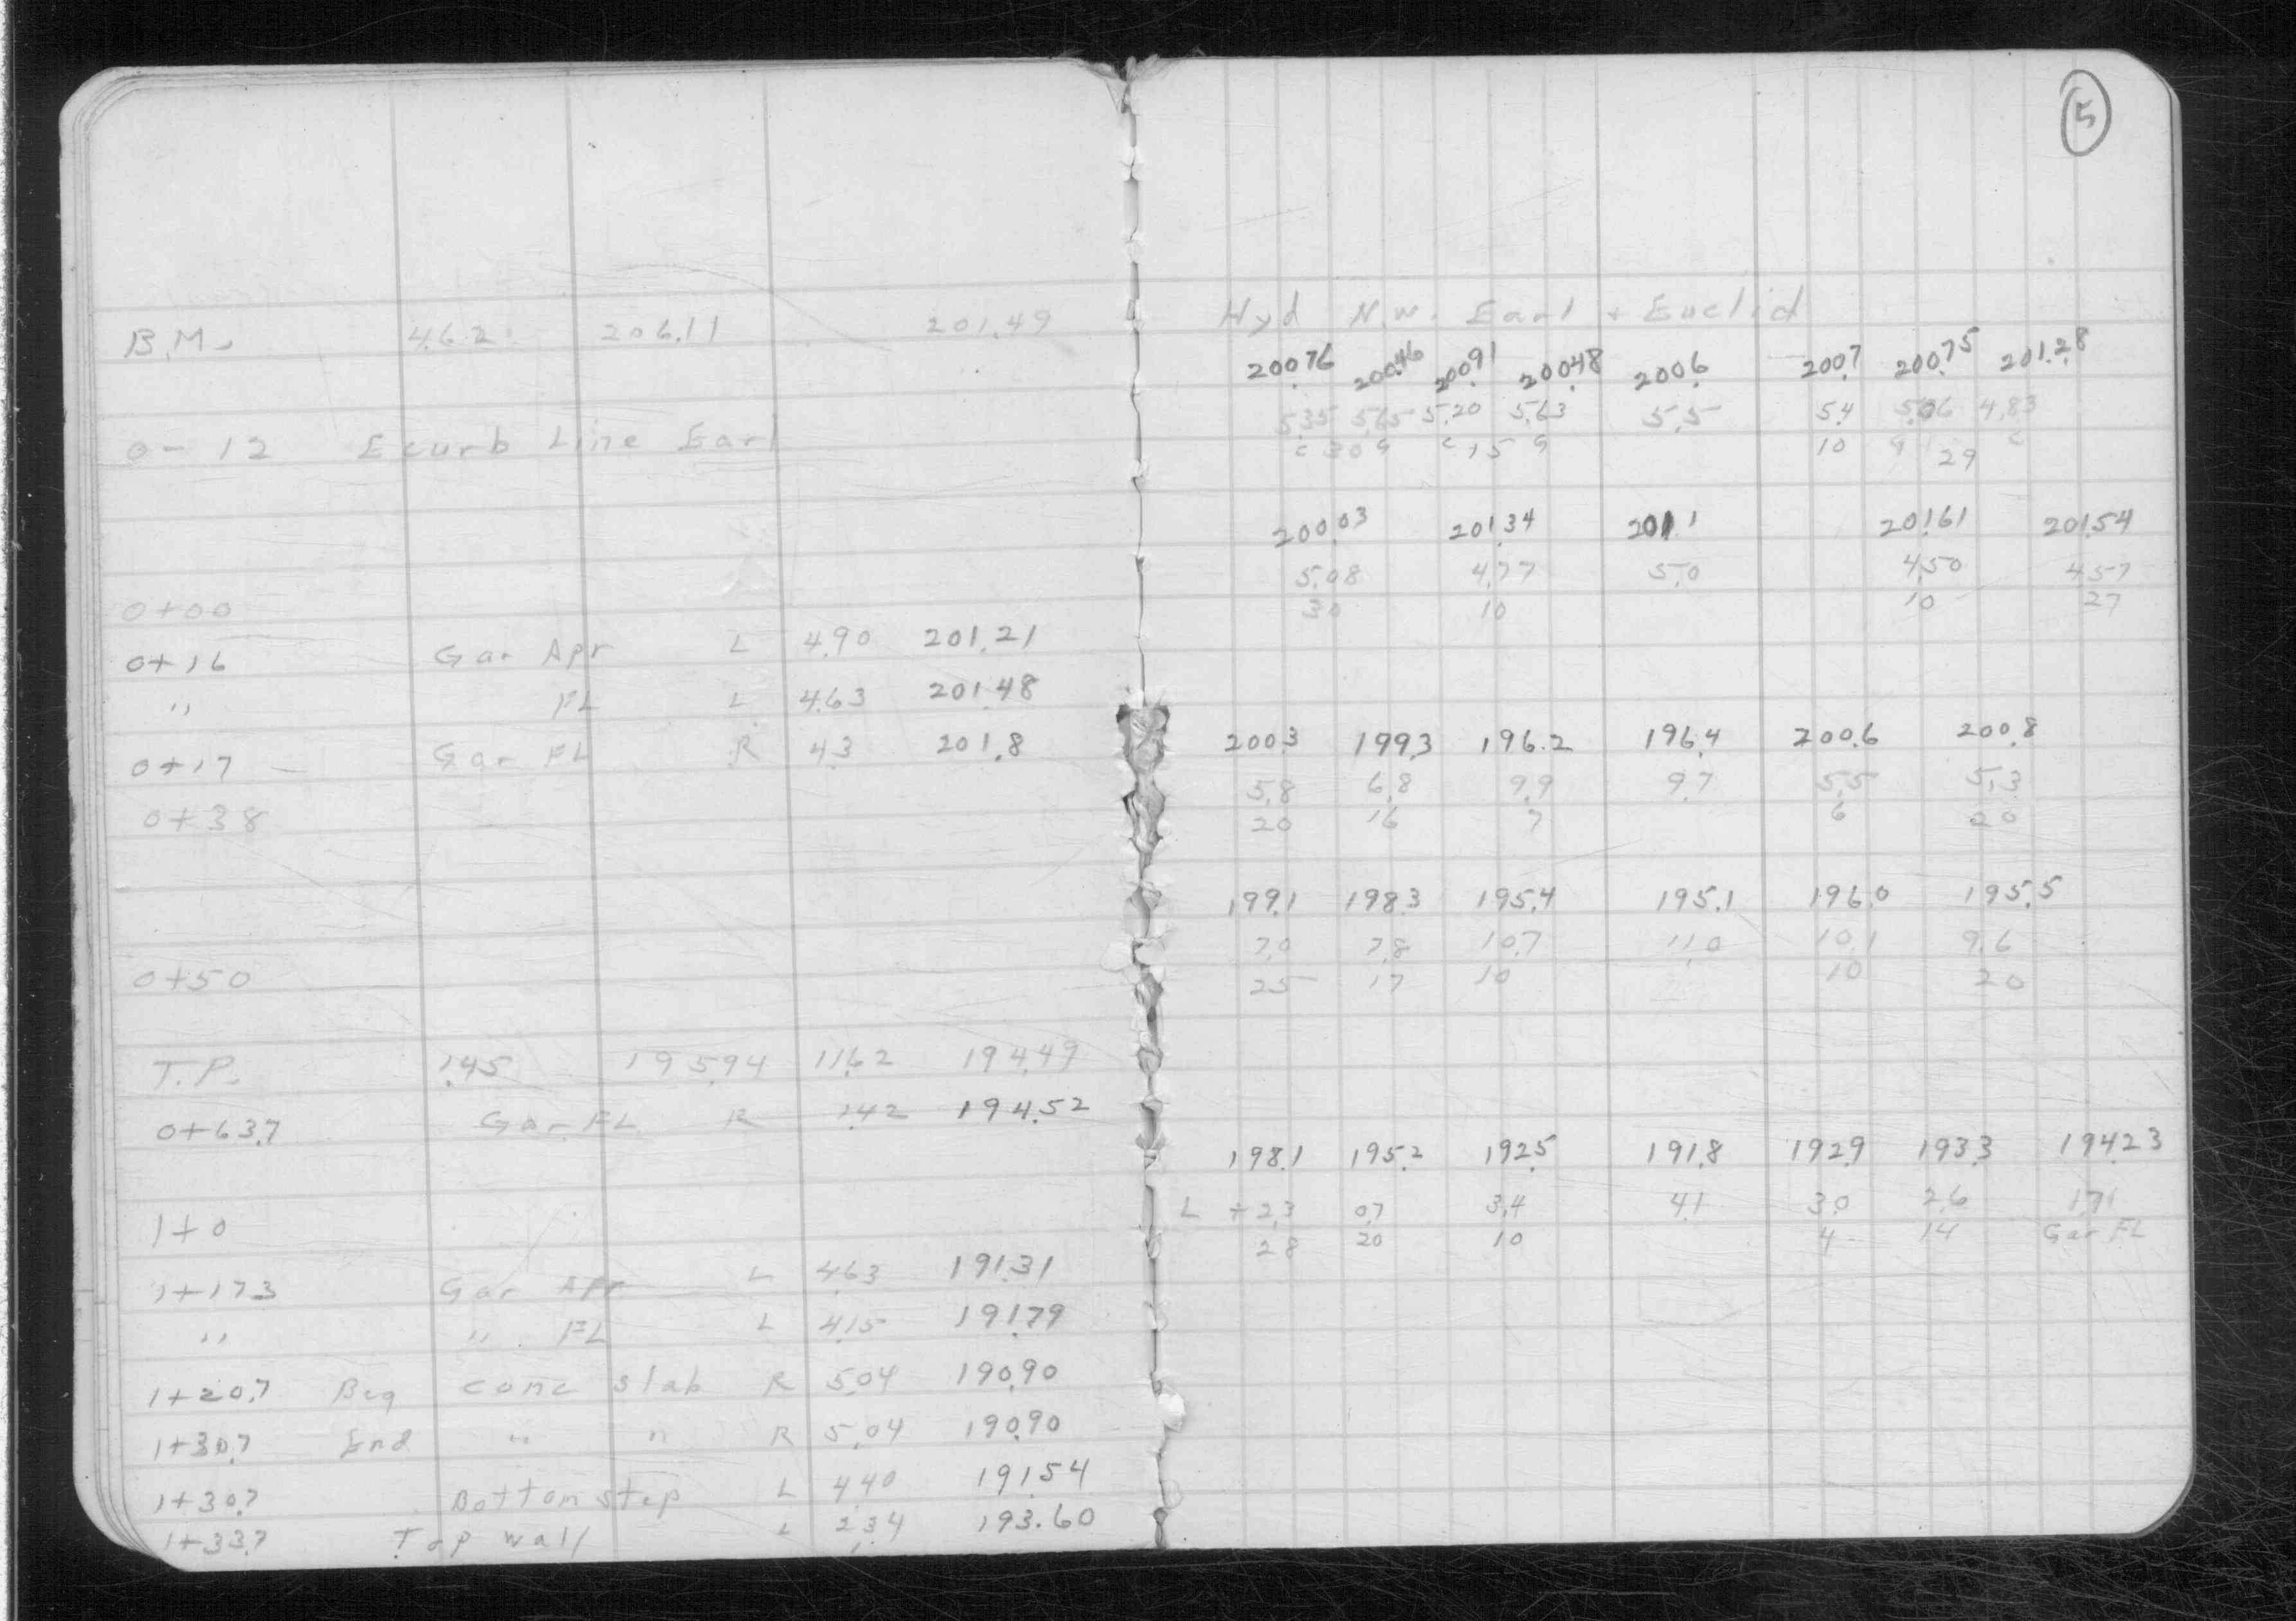 B.M. 4.62 206.11 201.49
0-12 E curb Line Earl
0+00
0+16 Gar Apr L 4.90 201.21
" FL L 4.63 201.48
0+17 Gar FL R 4.3 201.8
0+38
0+50
T.P. 1.45 195.94 11.62 194.49
0+63.7 Gar FL R 1.42 194.52
1+0
1+17.3 Gar Apr L 4.63 191.31
" " FL L 4.15 191.79
1+20.7 Beg conc slab R 5.04 190.90
1+30.7 End " " R 5.04 190.90
1+30.7 Bottom step L 4.40 191.54
1+33.7 Top wall L 2.34 193.60
5
Hyd N.W. Earl + Euclid
200.76 200.46 200.91 200.48 200.6 200.7 200.75 201.28
5.35 5.65 5.20 5.63 5.5 5.4 4.83
c 30 G c 15 G 10 G 29 c
200.03 201.34 201.1 201.61 201.54
5.08 4.77 5.0 4.50 4.57
30 10 10 27
200.3 199.3 196.2 196.4 200.6 200.8
5.8 6.8 9.9 9.7 5.5 5.3
20 16 7 6 20
199.1 198.3 195.4 195.1 196.0 195.5
7.0 7.8 10.7 11.0 10.1 9.6
25 17 10 10 20
198.1 195.2 192.5 191.8 192.9 193.3 194.23
L +2.3 0.7 3.4 4.1 3.0 2.6 1.71
28 20 10 4 14 Gar FL